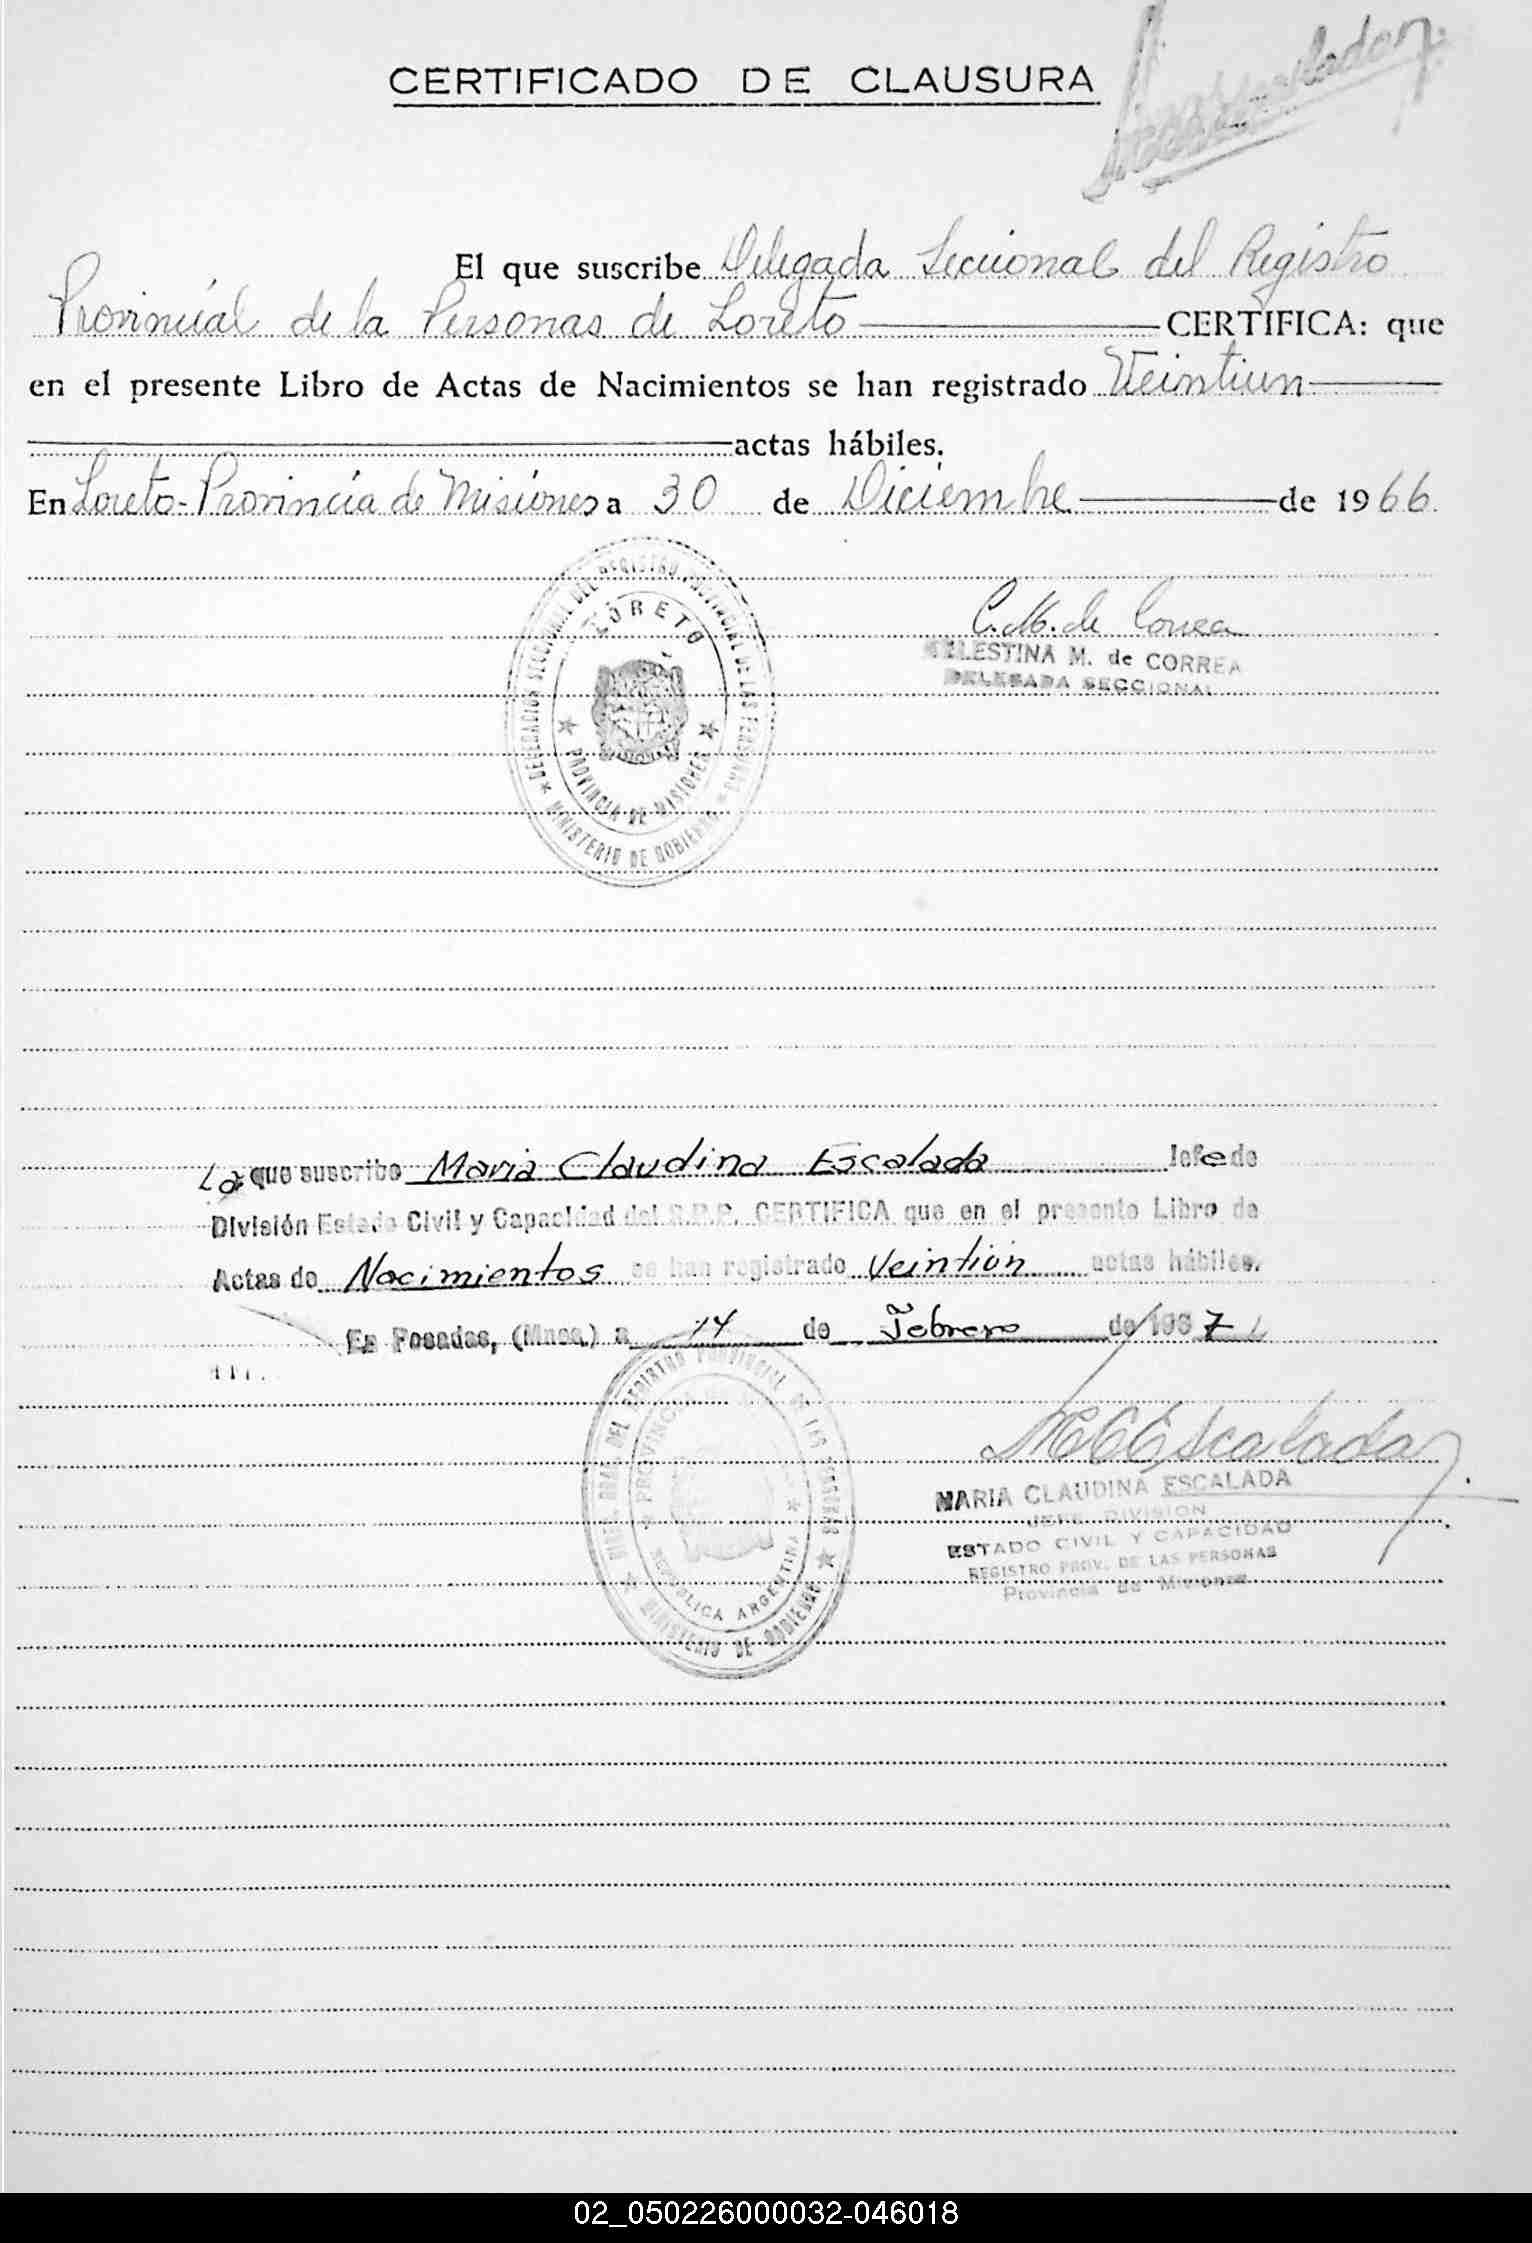 CERTIFICADO DE CLAUSURA
El que suscribe Delegada Seccional del Registro
Provincial de la Personas de Loreto CERTIFICA: que
en el presente Libro de Actas de Nacimientos se han registrado Veintiun
actas hábiles.
En Loreto-Provincia de Misiones a 30 de Diciembre de 1966
DELEGACION SECCIONAL DEL REGISTRO PROVINCIAL DE LAS PERSONAS
LORETO
PROVINCIA DE MISIONES
MINISTERIO DE GOBIERNO
C.M. de Correa
CELESTINA M. de CORREA
DELEGADA SECCIONAL
La que suscribe Maria Claudina Escalada Jefe de
División Estado Civil y Capacidad del R.P.P. CERTIFICA que en el presente Libro de
Actas de Nacimientos se han registrado Veintiún actas hábiles.
En Posadas, (Mnes.) a 14 de Febrero de 1967
DEL REGISTRO PROVINCIAL DE LAS PERSONAS
PROVINCIA
REPUBLICA ARGENTINA
MINISTERIO DE GOBIERNO
MCEscalada
MARIA CLAUDINA ESCALADA
JEFE DIVISION
ESTADO CIVIL Y CAPACIDAD
REGISTRO PROV. DE LAS PERSONAS
Provincia de Misiones
02_050226000032-046018